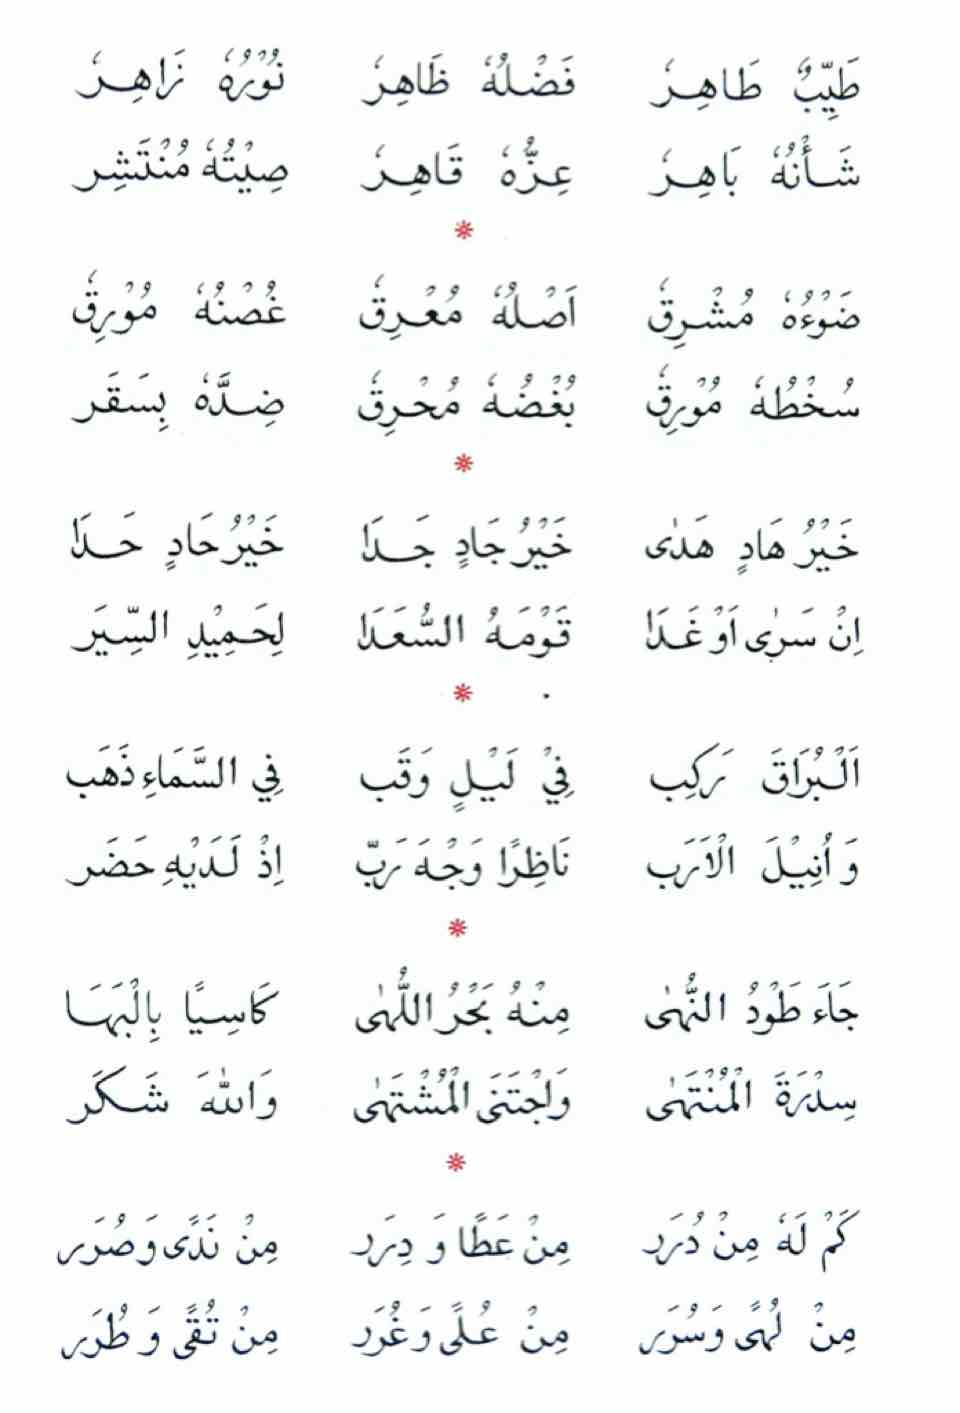 طَيِّبٌ طَاهِرٗ فَضْلُهٗ ظَاهِرٗ نُوْرُهٗ زَاهِرٗ
شَأْنُهٗ بَاهِرٗ عِزُّهٗ قَاهِرٗ صِيْتُهٗ مُنْتَشِر
ضَوْءُهٗ مُشْرِقٗ اَصْلُهٗ مُعْرِقٗ غُصْنُهٗ مُوْرِقٗ
سُخْطُهٗ مُوْرِقٗ بُغْضُهٗ مُحْرِقٗ ضِدُّهٗ بِسَقَر
خَيْرُ هَادٍ هَدٰى خَيْرُ جَادٍ جَدَا خَيْرُ حَادٍ حَدَا
اِنْ سَرٰى اَوْ غَدَا قَوْمَهُ السُّعَدَا لِحَمِيْدِ السِّيَر
اَلْبُرَاقَ رَكِب فِيْ لَيْلٍ وَقَب فِي السَّمَاءِ ذَهَب
وَ اُنِيْلَ الْاَرَب نَاظِرًا وَجْهَ رَبّ اِذْ لَدَيْهِ حَضَر
جَاءَ طَوْدُ النُّهٰى مِنْهُ بَحْرُ اللُّهٰى كَاسِيًا بِالْبَهَا
سِدْرَةَ الْمُنْتَهٰى وَاجْتَنَى الْمُشْتَهٰى وَاللهَ شَكَر
كَمْ لَهٗ مِنْ دُرَر مِنْ عَطًا وَ دِرَر مِنْ نَدًى وَصُرَر
مِنْ لُهًى وَسُرَر مِنْ عُلًى وَغُرَر مِنْ تُقًى وَ طُرَر